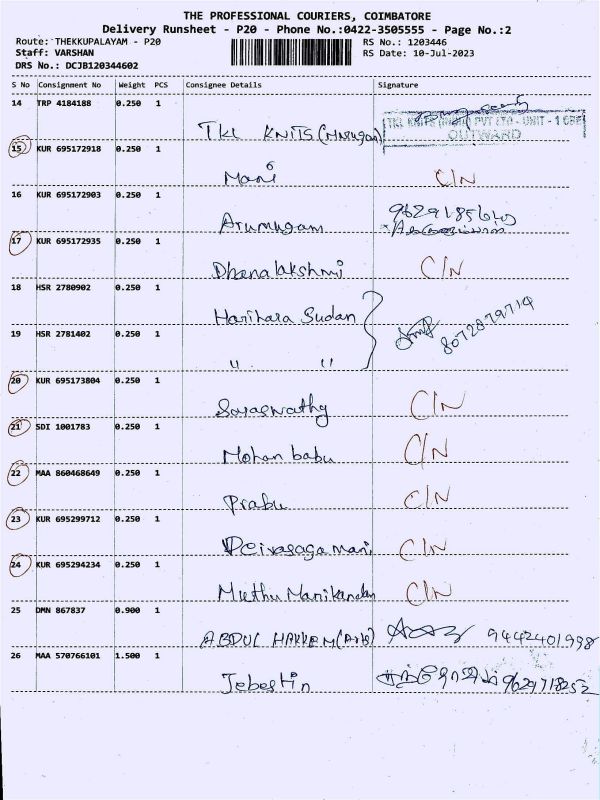 THE PROFESSIONAL COURIERS, COIMBATORE
Delivery Runsheet - P20 - Phone No.:0422-3505555 - Page No.:2
Route: THEKKUPALAYAM - P20 RS No.: 1203446
Staff: VARSHAN RS Date: 10-Jul-2023
DRS No.: DCJB120344602
S No Consignment No Weight PCS Consignee Details Signature
14 TRP 4184188 0.250 1
TKL KNITS (Murugan) TKL KNITS (INDIA) PVT LTD - UNIT - 1 CBE
OUTWARD
15 KUR 695172918 0.250 1
Mani C/N
16 KUR 695172903 0.250 1
Arumugam
17 KUR 695172935 0.250 1
Dhanalakshmi C/N
18 HSR 2780902 0.250 1
Harihara Sudan 8072879714
19 HSR 2781402 0.250 1
" "
20 KUR 695173804 0.250 1
Saraswathy C/N
21 SDI 1001783 0.250 1
Mohan babu C/N
22 MAA 860468649 0.250 1
Prabu C/N
23 KUR 695299712 0.250 1
Deivasagamani C/N
24 KUR 695294234 0.250 1
Muthu Manikandan C/N
25 DMN 867837 0.900 1
ABDUL HAKKEM 9442401998
26 MAA 570766101 1.500 1
Jebestin 9629718252